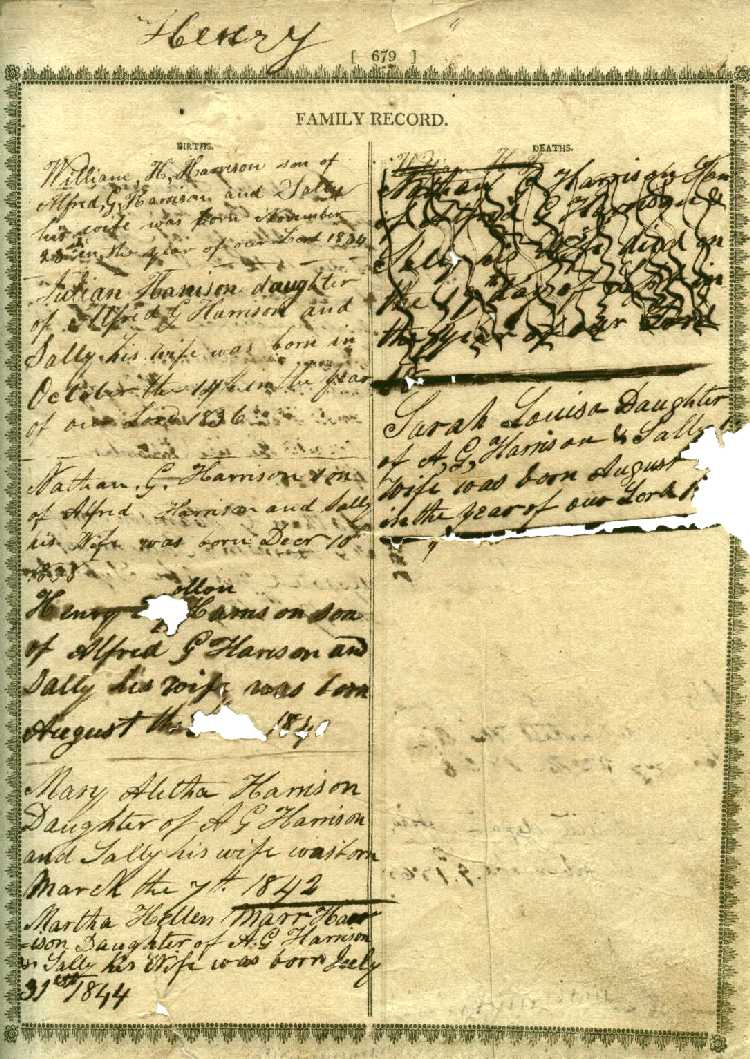 Henry
[ 679 ]
FAMILY RECORD.
BIRTHS.
William H. Harrison son of
Alfred G. Harrison and Sally
his wife was born November
in the year of our Lord 1834
Julian Harrison daughter
of Alfred G Harrison and
Sally his wife was born in
October the 14th in the year
of our Lord 1836
Nathan G. Harrison son
of Alfred Harrison and Sally
his Wife was born Decr 10
1838
Henry Harrison son
of Alfred G Harrison and
Sally his wife was born
August the 184
Mary Aletha Harrison
Daughter of A G Harrison
and Sally his wife was born
March the 7th 1842
Martha Hellen Marr Harr
-ison Daughter of A. G Harrison
& Sally his Wife was born July
31st 1844
DEATHS.
Nathan G Harrison
of Alfred G Harrison &
Sally his wife died on
the
the year of our Lord
Sarah Louisa Daughter
of A, G, Harrison & Sally
Wife was born August
in the year of our Lord